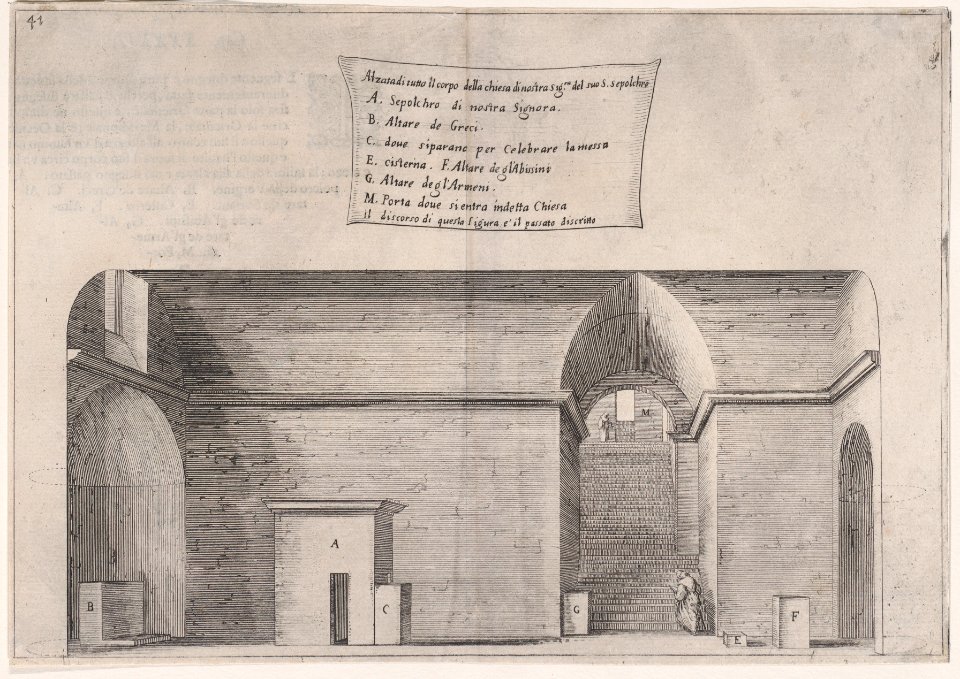 41
Alzata di tutto il corpo della chiesa di nostra Sig.ra del suo S. Sepolchro
A. Sepolchro di nostra Signora.
B. Altare de Greci.
C. doue si parano per Celebrare la messa
E. cisterna. F. Altare degl'Abissini
G. Altare degl'Armeni.
M. Porta doue si entra in detta Chiesa
il discorso di questa figura e' il passato discritto
M
A
B
C
G
E
F